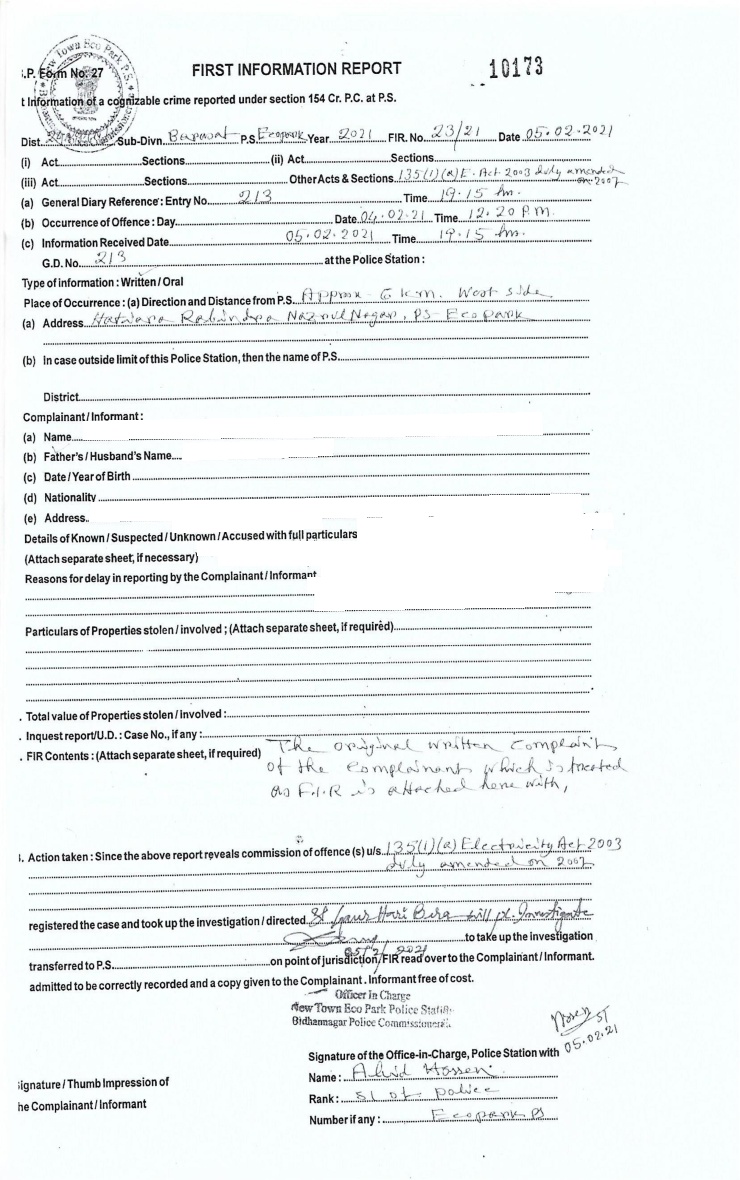 New Town Eco Park P.S.
.P. Form No. 27
FIRST INFORMATION REPORT
10173
t Information of a cognizable crime reported under section 154 Cr. P.C. at P.S.
Dist. Sub-Divn. Barasat P.S. Ecopark Year 2021 FIR. No. 23/21 Date 05.02.2021
(i) Act Sections (ii) Act Sections
(iii) Act Sections Other Acts & Sections 135(1)(a) E. Act 2003 duly amended on 2007
(a) General Diary Reference : Entry No. 213 Time 19.15 hrs.
(b) Occurrence of Offence : Day Date 04.02.21 Time 12.20 P.M.
(c) Information Received Date 05.02.2021 Time 19.15 hrs.
G.D. No. 213 at the Police Station :
Type of information : Written / Oral
Place of Occurrence : (a) Direction and Distance from P.S. Approx 6 k.m. West side
(a) Address Hatiara Rabindra Nazrul Nagar, PS- Ecopark
(b) In case outside limit of this Police Station, then the name of P.S.
District
Complainant / Informant :
(a) Name
(b) Father's / Husband's Name
(c) Date / Year of Birth
(d) Nationality
(e) Address
Details of Known / Suspected / Unknown / Accused with full particulars
(Attach separate sheet, if necessary)
Reasons for delay in reporting by the Complainant / Informant
Particulars of Properties stolen / involved ; (Attach separate sheet, if required)
. Total value of Properties stolen / involved :
. Inquest report / U.D. : Case No., if any :
. FIR Contents : (Attach separate sheet, if required) The original written complaint
of the complainant which is treated
as F.I.R is attached here with,
. Action taken : Since the above report reveals commission of offence (s) u/s. 135(1)(a) Electricity Act 2003
duly amended on 2007
registered the case and took up the investigation / directed SI Gour Hari Bera will pl. Investigate
to take up the investigation
05/2/2021
transferred to P.S. on point of jurisdiction / FIR read over to the Complainant / Informant.
admitted to be correctly recorded and a copy given to the Complainant . Informant free of cost.
Officer In Charge
New Town Eco Park Police Station
Bidhannagar Police Commissionerate
SI
05.02.21
Signature of the Office-in-Charge, Police Station with
Name : Abid Hossen
ignature / Thumb Impression of
Rank : SI of police
he Complainant / Informant
Number if any : Ecopark PS